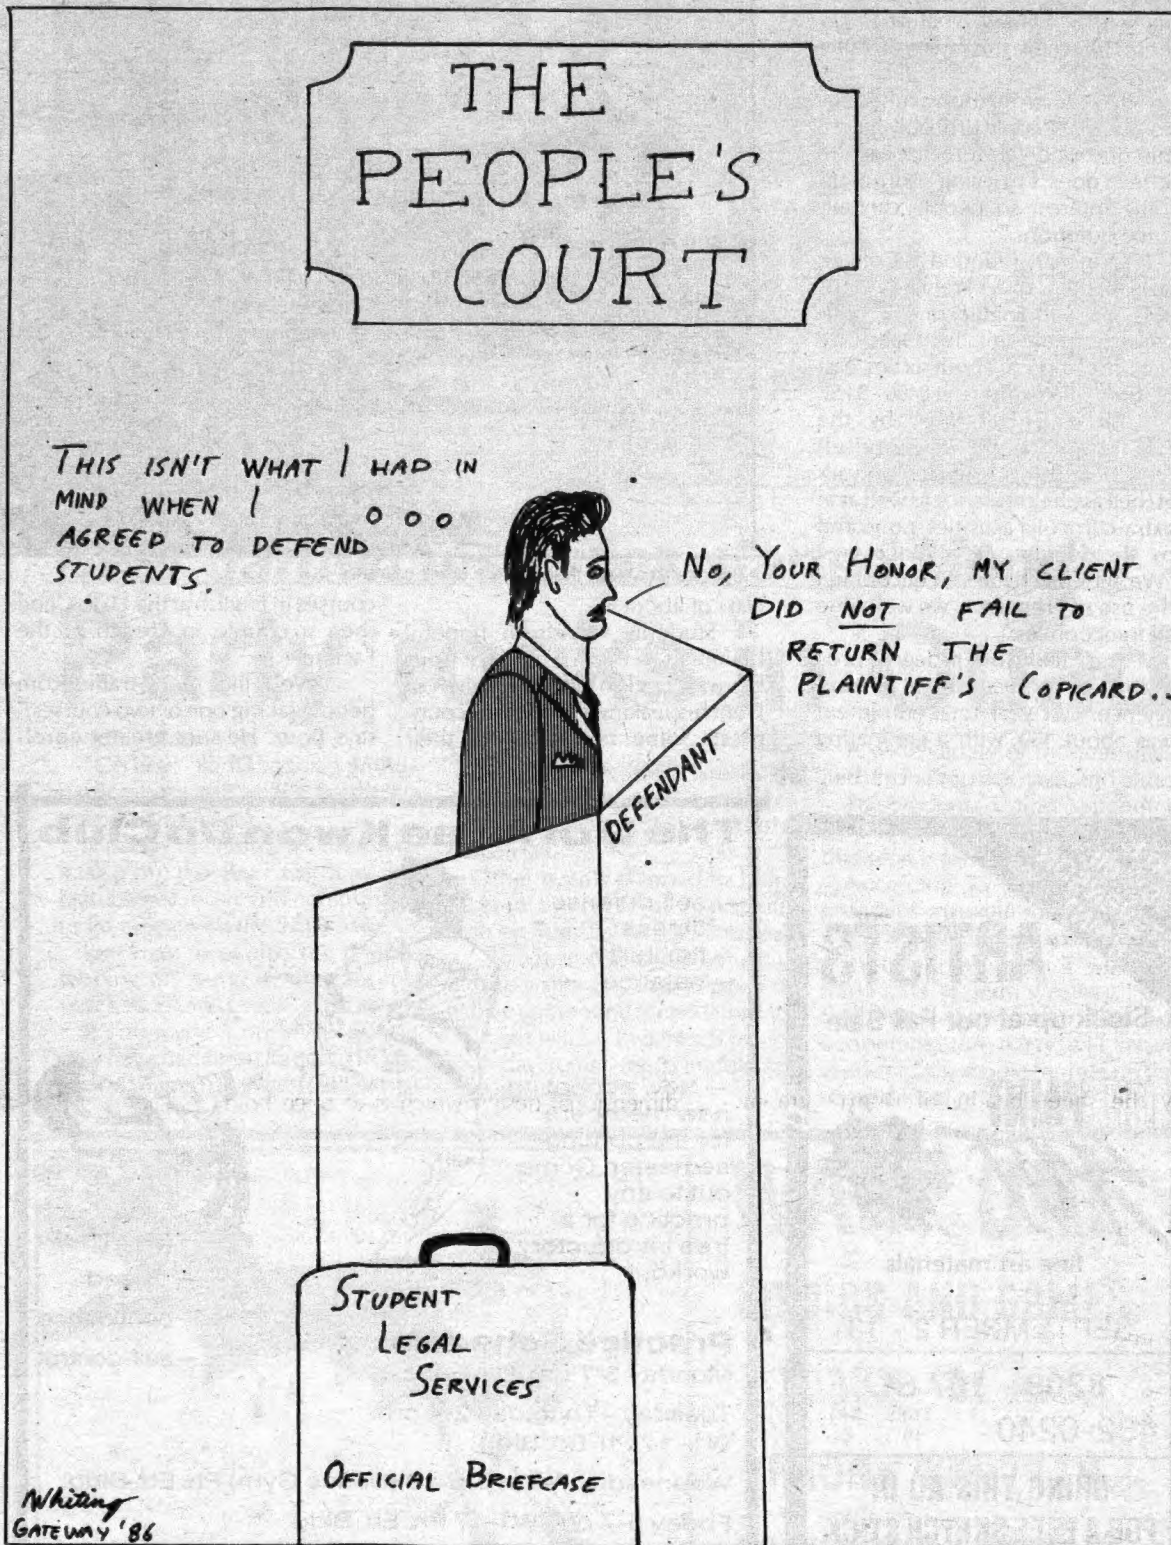 THE
PEOPLE'S
COURT
THIS ISN'T WHAT I HAD IN
MIND WHEN I
AGREED TO DEFEND
STUDENTS.
NO, YOUR HONOR, MY CLIENT
DID NOT FAIL TO
RETURN THE
PLAINTIFF'S COPICARD..
DEFENDANT
STUDENT
LEGAL
SERVICES
OFFICIAL BRIEFCASE
Whiting
GATEWAY '86